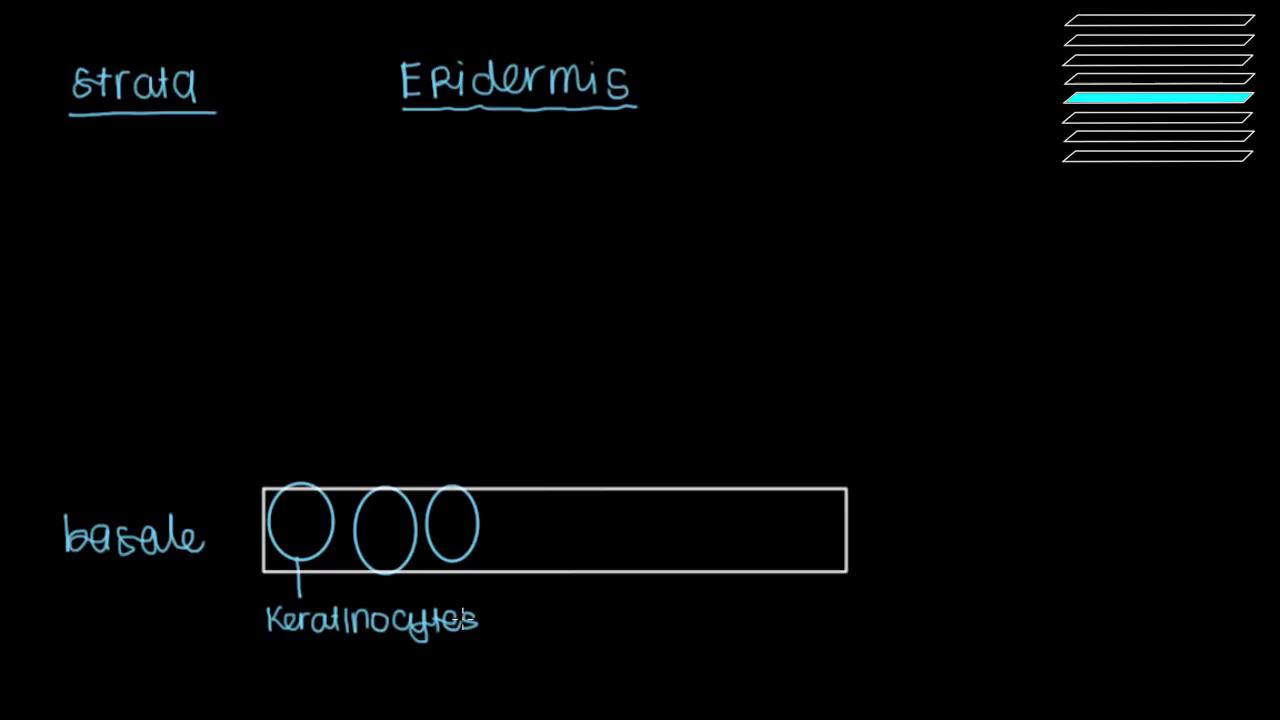 strata
Epidermis
basale
Keratinocytes